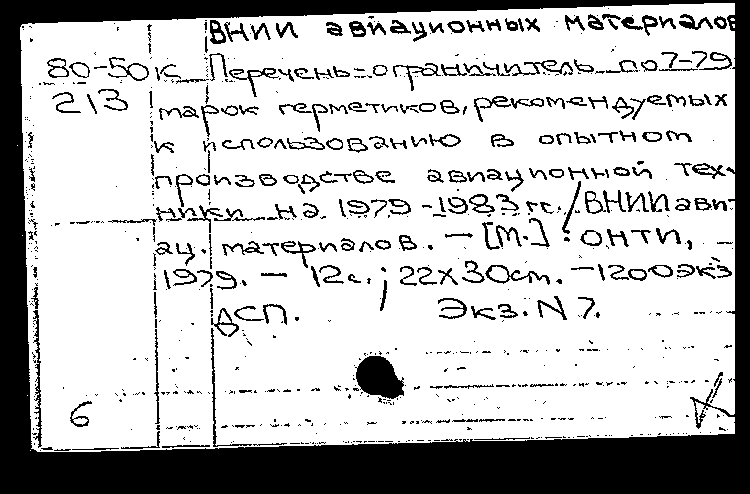 ВНИИ авиационных материалов
80-50к Перечень-ограничитель по7-79
213 марок герметиков, рекомендуемых
к использованию в опытном
производстве авиационной тех-
ники на 1979-1983 гг. / ВНИИ ави-
ац. материалов. — [М.] : ОНТИ,
1979. — 12с. ; 22х30см. — 1200экз
ДСП. Экз. N 7.
6